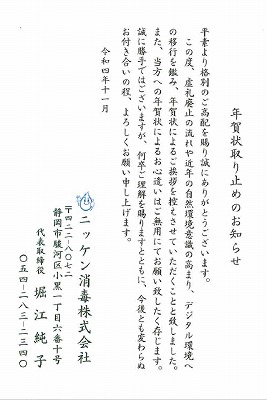 年賀状取り止めのお知らせ
平素より格別のご高配を賜り誠にありがとうございます。
この度、虚礼廃止の流れや近年の自然環境意識の高まり、デジタル環境へ
の移行を鑑み、年賀状によるご挨拶を控えさせていただくことと致しました。
また、当方への年賀状によるお心遣いはご無用にてお願い致したく存じます。
誠に勝手ではございますが、何卒ご理解を賜りますとともに、今後とも変わらぬ
お付き合いの程、よろしくお願い申し上げます。
令和四年十一月
ニッケン消毒株式会社
〒四二二-八〇七二
静岡市駿河区小黒一丁目六番十号
代表取締役 堀江純子
〇五四-二八三-二三四〇